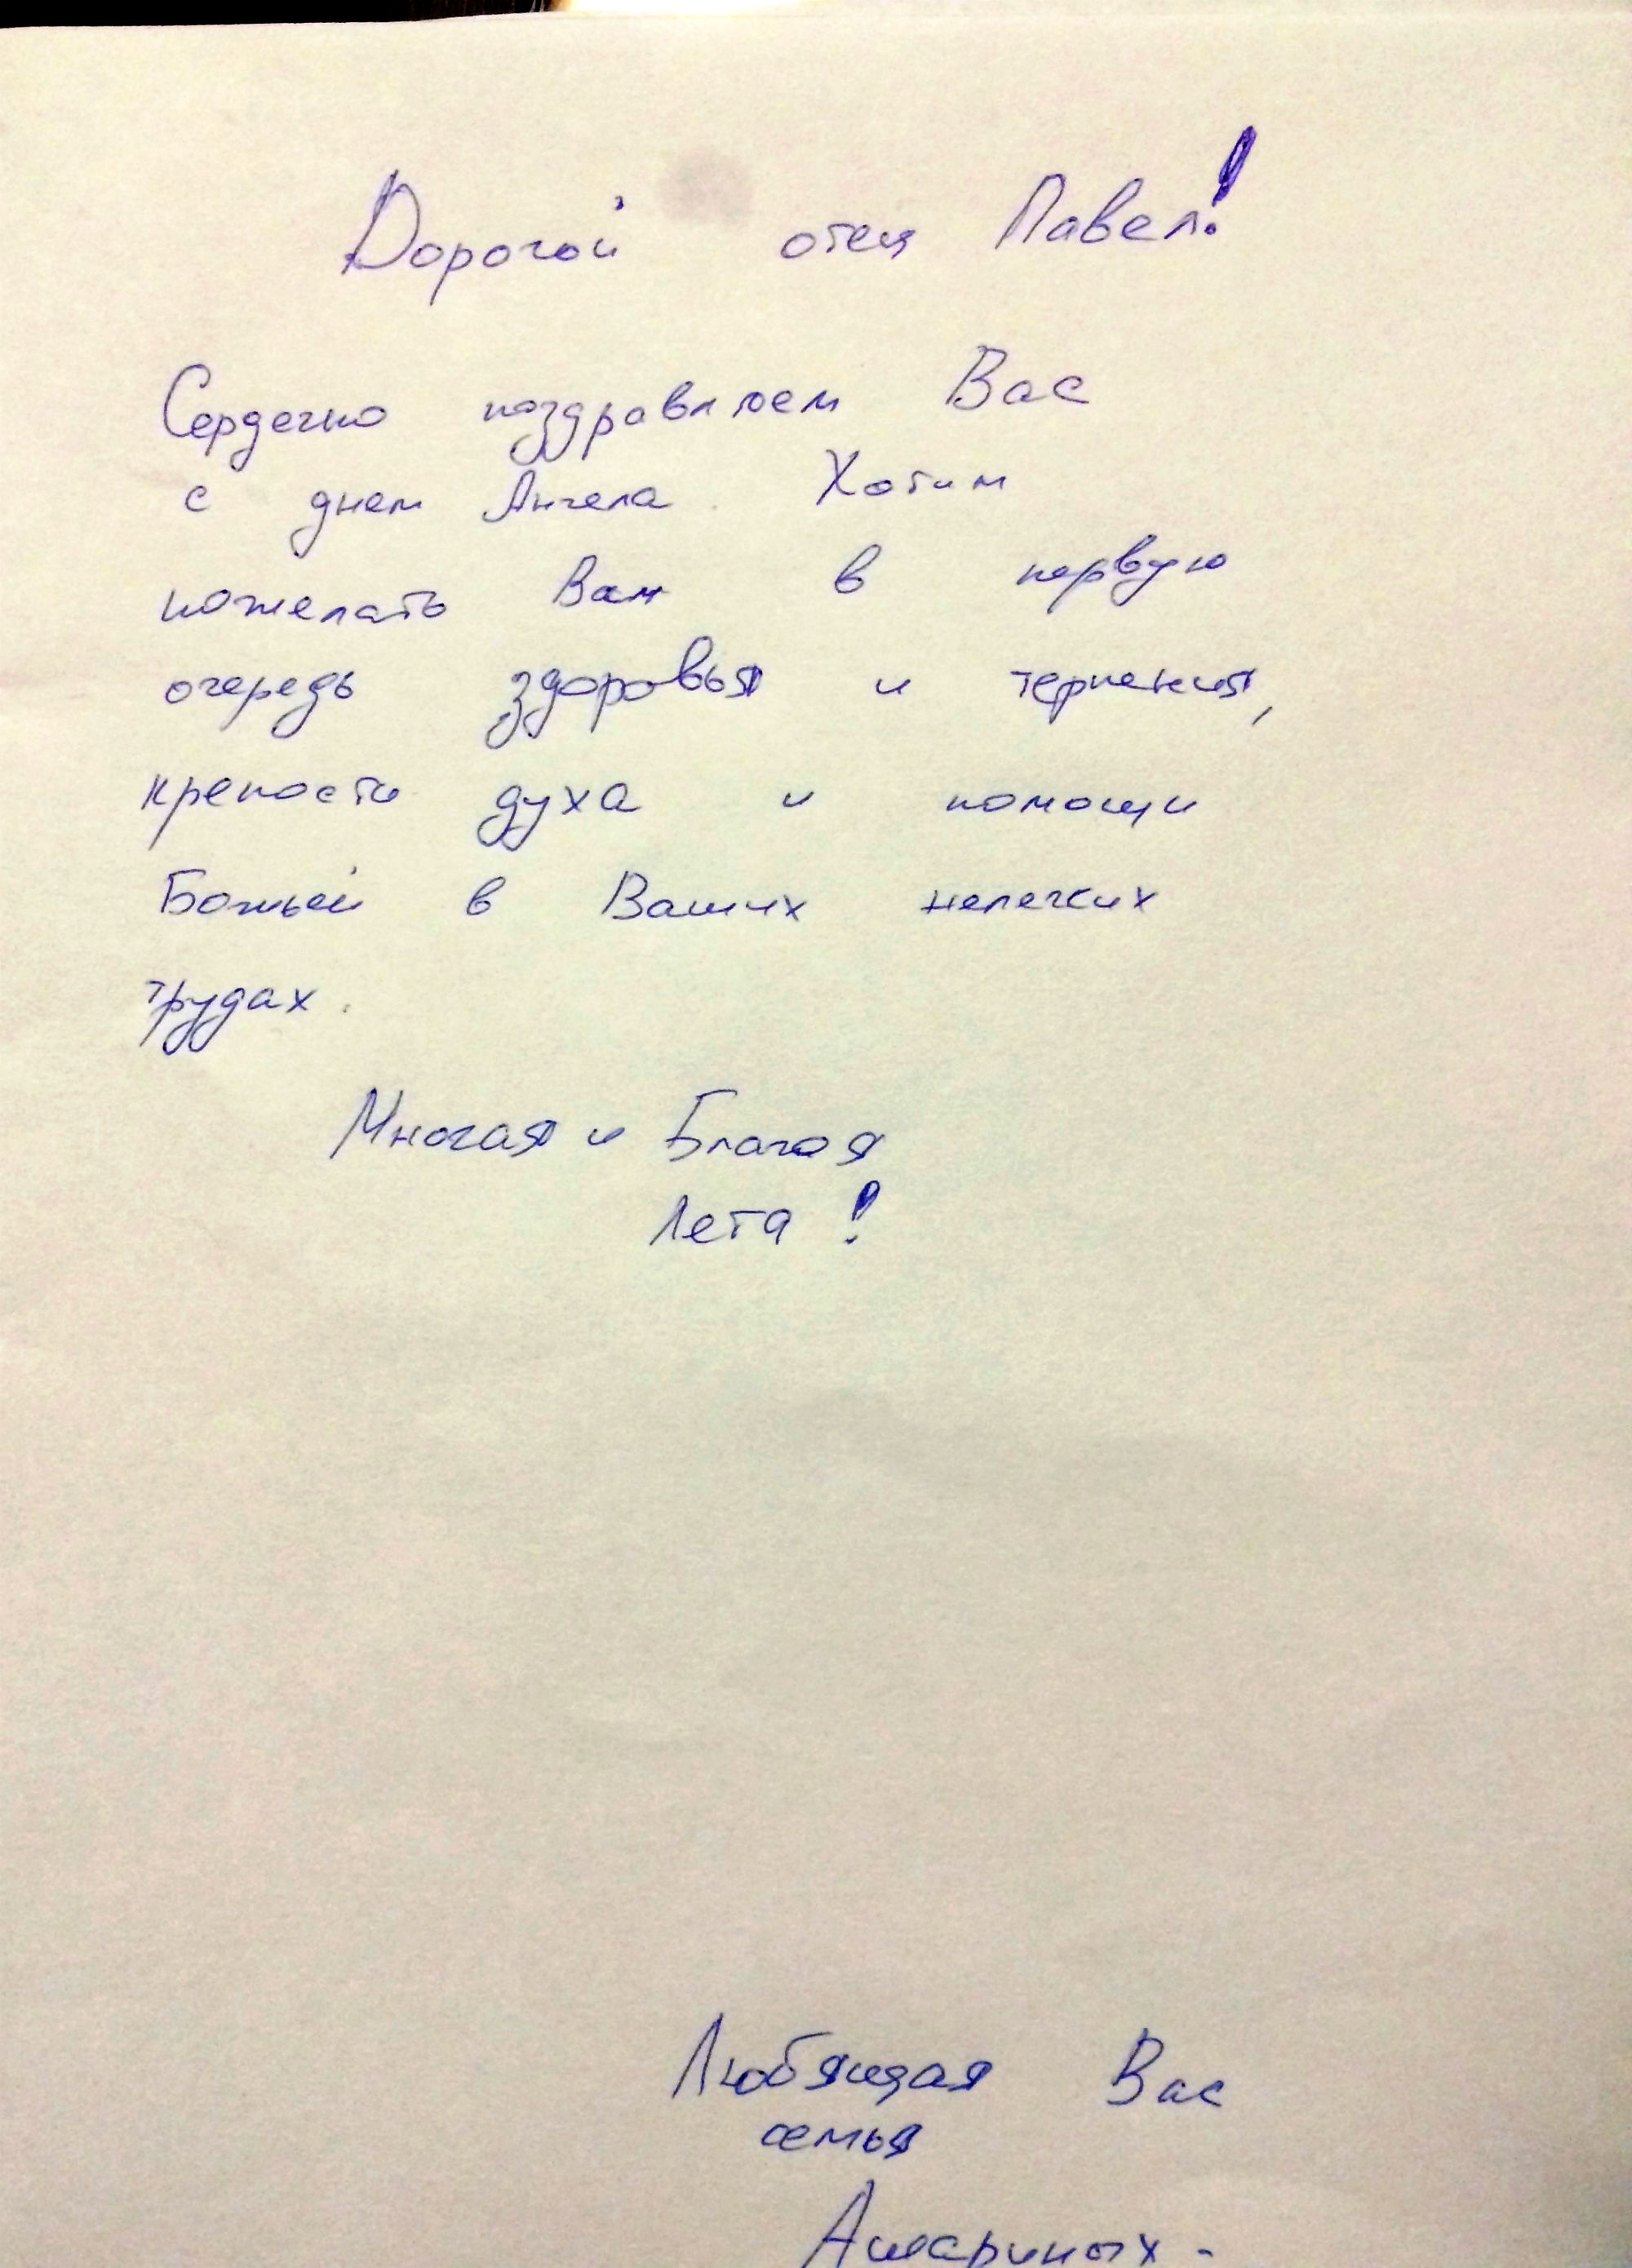 Дорогой отец Павел!
Сердечно поздравляем Вас
с днем Ангела. Хотим
пожелать Вам в первую
очередь здоровья и терпения,
крепости духа и помощи
Божьей в Ваших нелегких
трудах.
Многая и Благоя
Лета!
Любящая Вас
семья